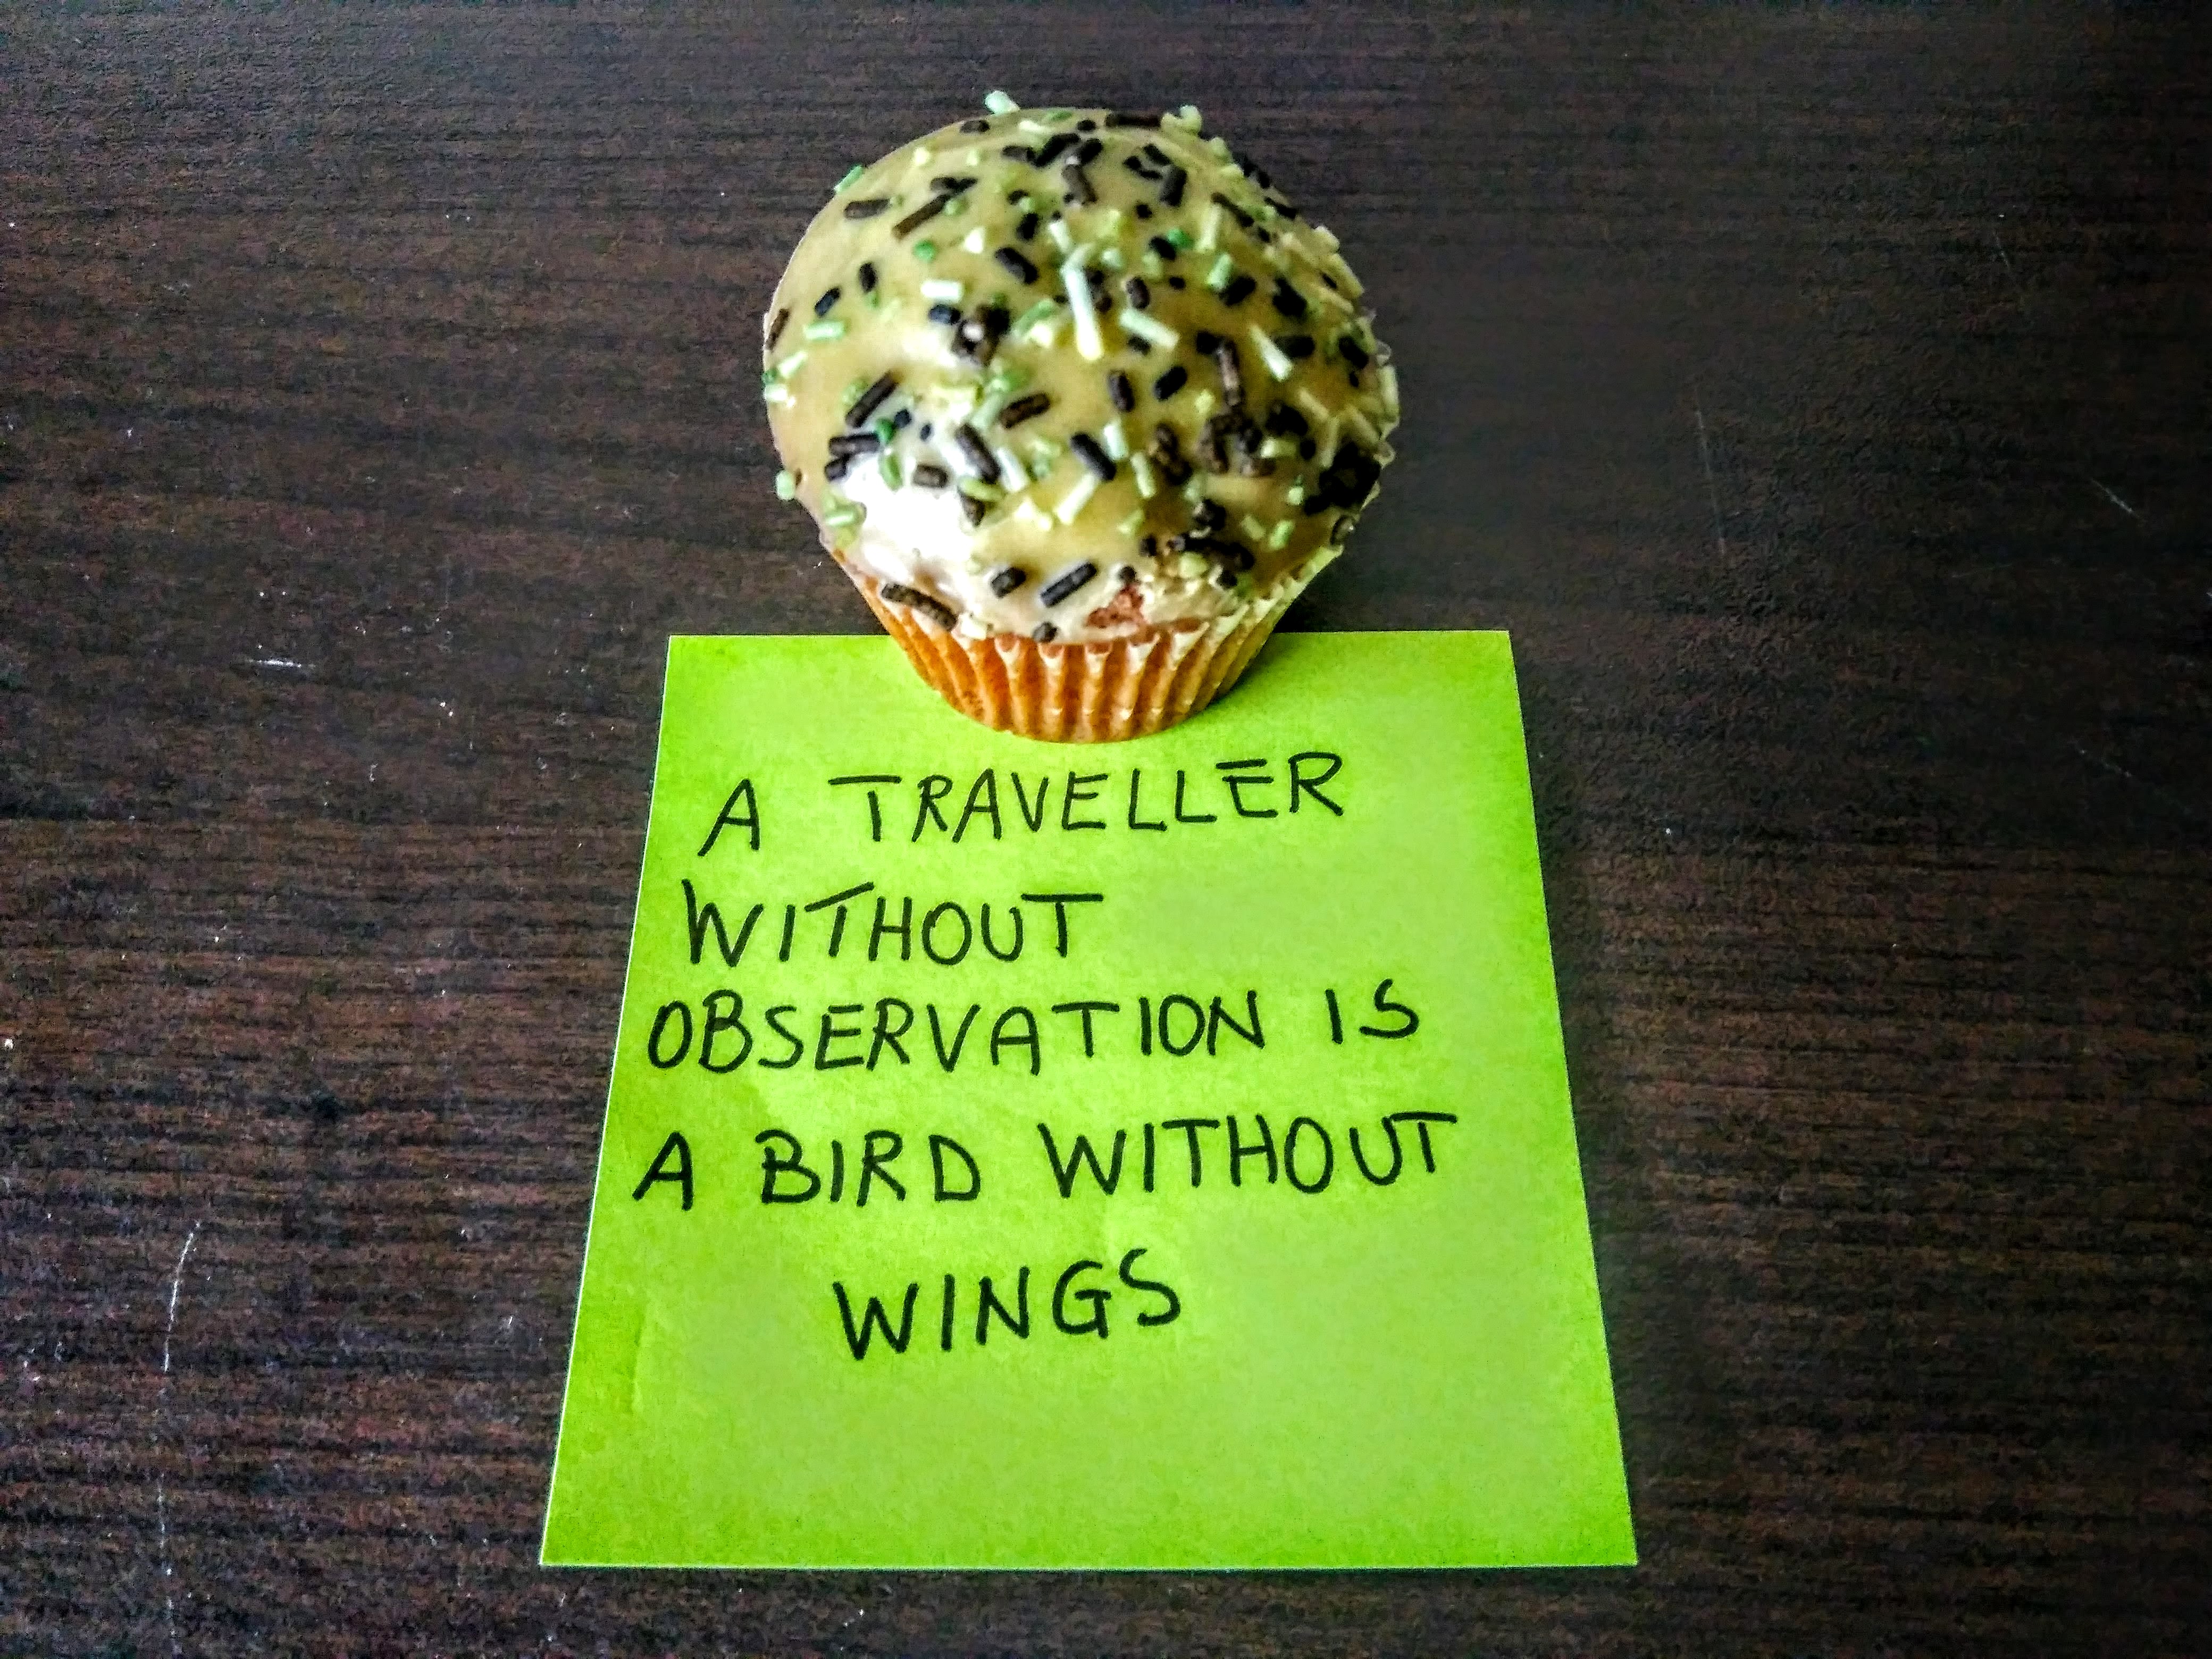 A TRAVELLER
WITHOUT
OBSERVATION IS
A BIRD WITHOUT
WINGS